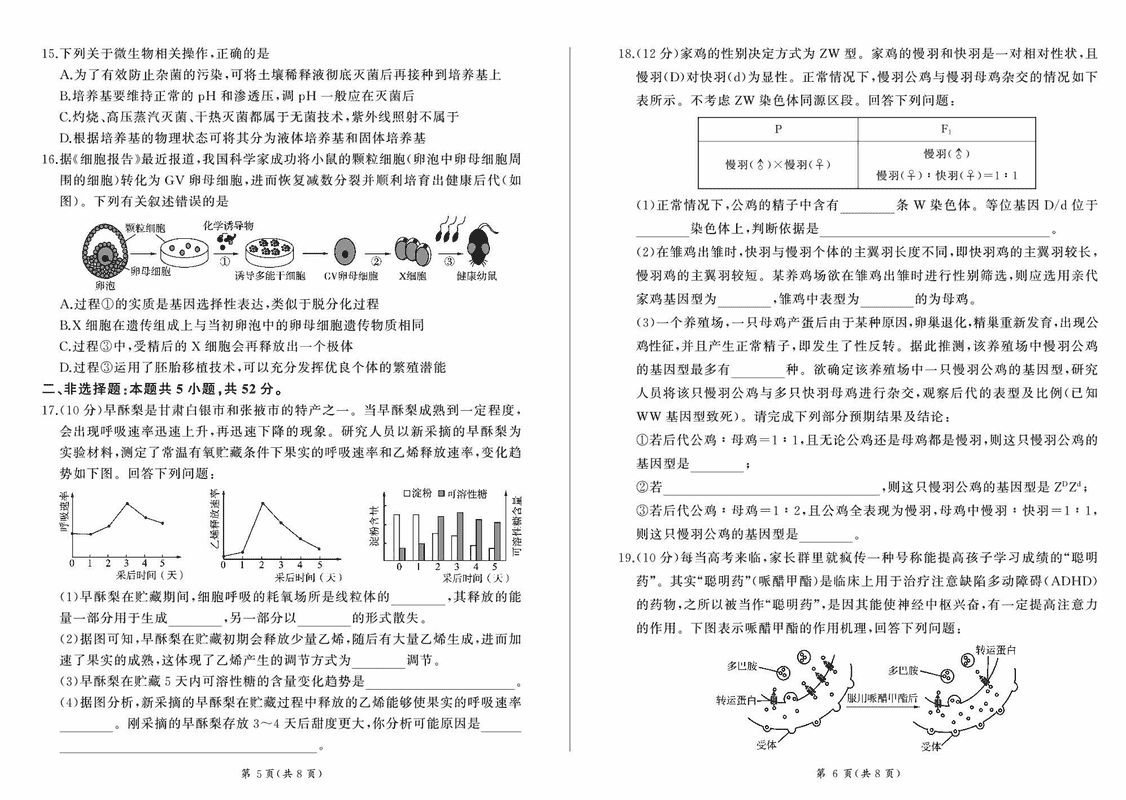 15.下列关于微生物相关操作,正确的是
A.为了有效防止杂菌的污染,可将土壤稀释液彻底灭菌后再接种到培养基上
B.培养基要维持正常的 pH 和渗透压,调 pH 一般应在灭菌后
C.灼烧、高压蒸汽灭菌、干热灭菌都属于无菌技术,紫外线照射不属于
D.根据培养基的物理状态可将其分为液体培养基和固体培养基
16.据《细胞报告》最近报道,我国科学家成功将小鼠的颗粒细胞(卵泡中卵母细胞周
围的细胞)转化为 GV 卵母细胞,进而恢复减数分裂并顺利培育出健康后代(如
图)。下列有关叙述错误的是
颗粒细胞
化学诱导物
卵母细胞
卵泡
①
诱导多能干细胞
GV卵母细胞
②
X细胞
③
健康幼鼠
A.过程①的实质是基因选择性表达,类似于脱分化过程
B.X 细胞在遗传组成上与当初卵泡中的卵母细胞遗传物质相同
C.过程③中,受精后的 X 细胞会再释放出一个极体
D.过程③运用了胚胎移植技术,可以充分发挥优良个体的繁殖潜能
二、非选择题:本题共 5 小题,共 52 分。
17.(10 分)早酥梨是甘肃白银市和张掖市的特产之一。当早酥梨成熟到一定程度,
会出现呼吸速率迅速上升,再迅速下降的现象。研究人员以新采摘的早酥梨为
实验材料,测定了常温有氧贮藏条件下果实的呼吸速率和乙烯释放速率,变化趋
势如下图。回答下列问题:
呼吸速率
0 1 2 3 4 5
采后时间(天)
乙烯释放速率
0 1 2 3 4 5
采后时间(天)
□淀粉 ■可溶性糖
淀粉含量
可溶性糖含量
0 1 2 3 4 5
采后时间(天)
(1)早酥梨在贮藏期间,细胞呼吸的耗氧场所是线粒体的________,其释放的能
量一部分用于生成________,另一部分以________的形式散失。
(2)据图可知,早酥梨在贮藏初期会释放少量乙烯,随后有大量乙烯生成,进而加
速了果实的成熟,这体现了乙烯产生的调节方式为________调节。
(3)早酥梨在贮藏 5 天内可溶性糖的含量变化趋势是______________________。
(4)据图分析,新采摘的早酥梨在贮藏过程中释放的乙烯能够使果实的呼吸速率
________。刚采摘的早酥梨存放 3～4 天后甜度更大,你分析可能原因是______
______________________________________。
第 5 页(共 8 页)
18.(12 分)家鸡的性别决定方式为 ZW 型。家鸡的慢羽和快羽是一对相对性状,且
慢羽(D)对快羽(d)为显性。正常情况下,慢羽公鸡与慢羽母鸡杂交的情况如下
表所示。不考虑 ZW 染色体同源区段。回答下列问题:
P F₁
慢羽(♂)×慢羽(♀) 慢羽(♂)
慢羽(♀)∶快羽(♀)=1∶1
(1)正常情况下,公鸡的精子中含有________条 W 染色体。等位基因 D/d 位于
________染色体上,判断依据是__________________________________。
(2)在雏鸡出雏时,快羽与慢羽个体的主翼羽长度不同,即快羽鸡的主翼羽较长,
慢羽鸡的主翼羽较短。某养鸡场欲在雏鸡出雏时进行性别筛选,则应选用亲代
家鸡基因型为________,雏鸡中表型为________的为母鸡。
(3)一个养殖场,一只母鸡产蛋后由于某种原因,卵巢退化,精巢重新发育,出现公
鸡性征,并且产生正常精子,即发生了性反转。据此推测,该养殖场中慢羽公鸡
的基因型最多有________种。欲确定该养殖场中一只慢羽公鸡的基因型,研究
人员将该只慢羽公鸡与多只快羽母鸡进行杂交,观察后代的表型及比例(已知
WW 基因型致死)。请完成下列部分预期结果及结论:
①若后代公鸡∶母鸡=1∶1,且无论公鸡还是母鸡都是慢羽,则这只慢羽公鸡的
基因型是________;
②若________________________________,则这只慢羽公鸡的基因型是 ZᴰZᵈ;
③若后代公鸡∶母鸡=1∶2,且公鸡全表现为慢羽,母鸡中慢羽∶快羽=1∶1,
则这只慢羽公鸡的基因型是________。
19.(10 分)每当高考来临,家长群里就疯传一种号称能提高孩子学习成绩的“聪明
药”。其实“聪明药”(哌醋甲酯)是临床上用于治疗注意缺陷多动障碍(ADHD)
的药物,之所以被当作“聪明药”,是因其能使神经中枢兴奋,有一定提高注意力
的作用。下图表示哌醋甲酯的作用机理,回答下列问题:
多巴胺
转运蛋白
受体
服用哌醋甲酯后
转运蛋白
多巴胺
受体
第 6 页(共 8 页)